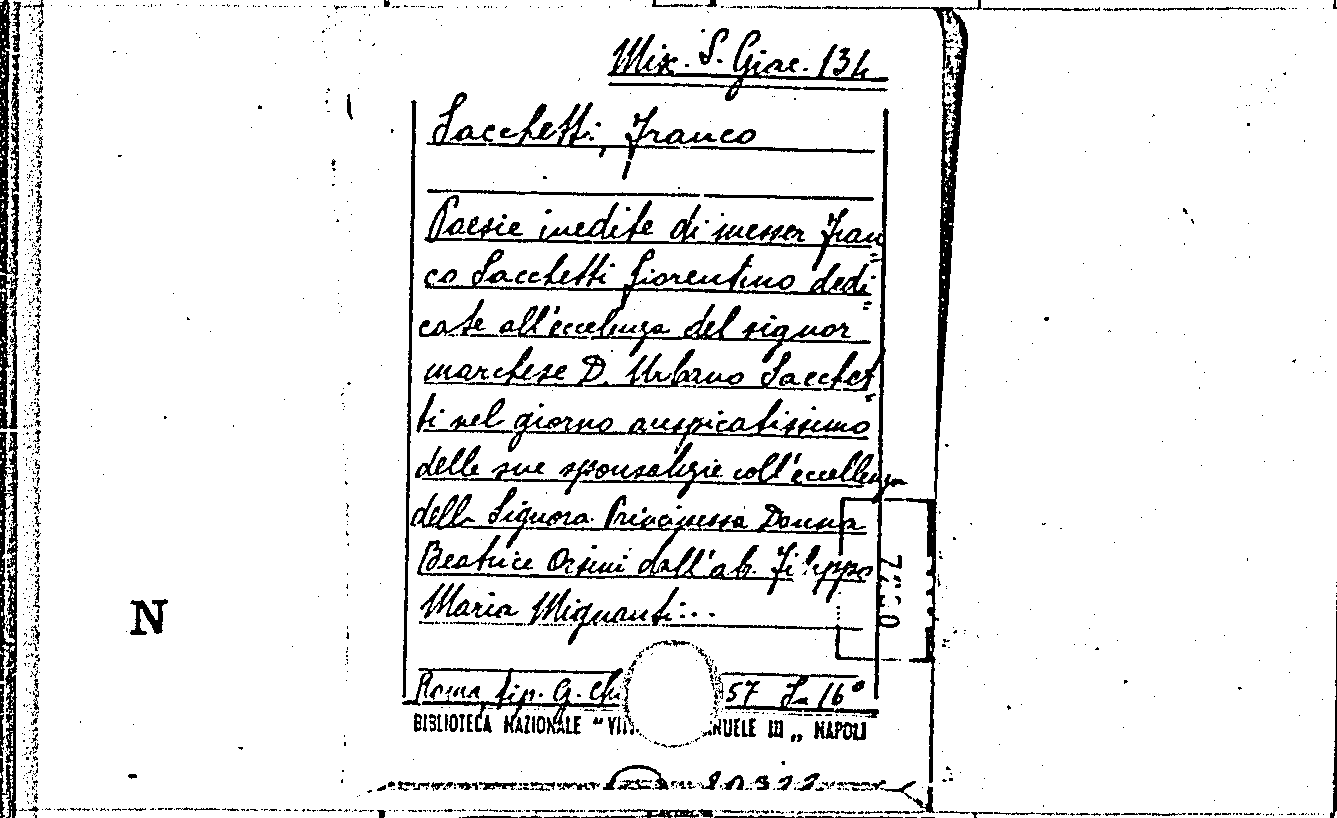 Misc. S. Giac. 134
Sacchetti, Franco
Poesie inedite di messer Fran
co Sacchetti fiorentino dedi
cate all'eccelenza del signor
marchese D. Urbano Sacchet
ti nel giorno auspicatissimo
delle sue sponsalizie coll'eccellenza
della Signora Principessa Donna
Beatrice Orsini dall'ab. Filippo
Maria Mignanti...
Roma, tip. G. Chi 57 In 16°
BIBLIOTECA NAZIONALE "VITT ANUELE III„ NAPOLI
N